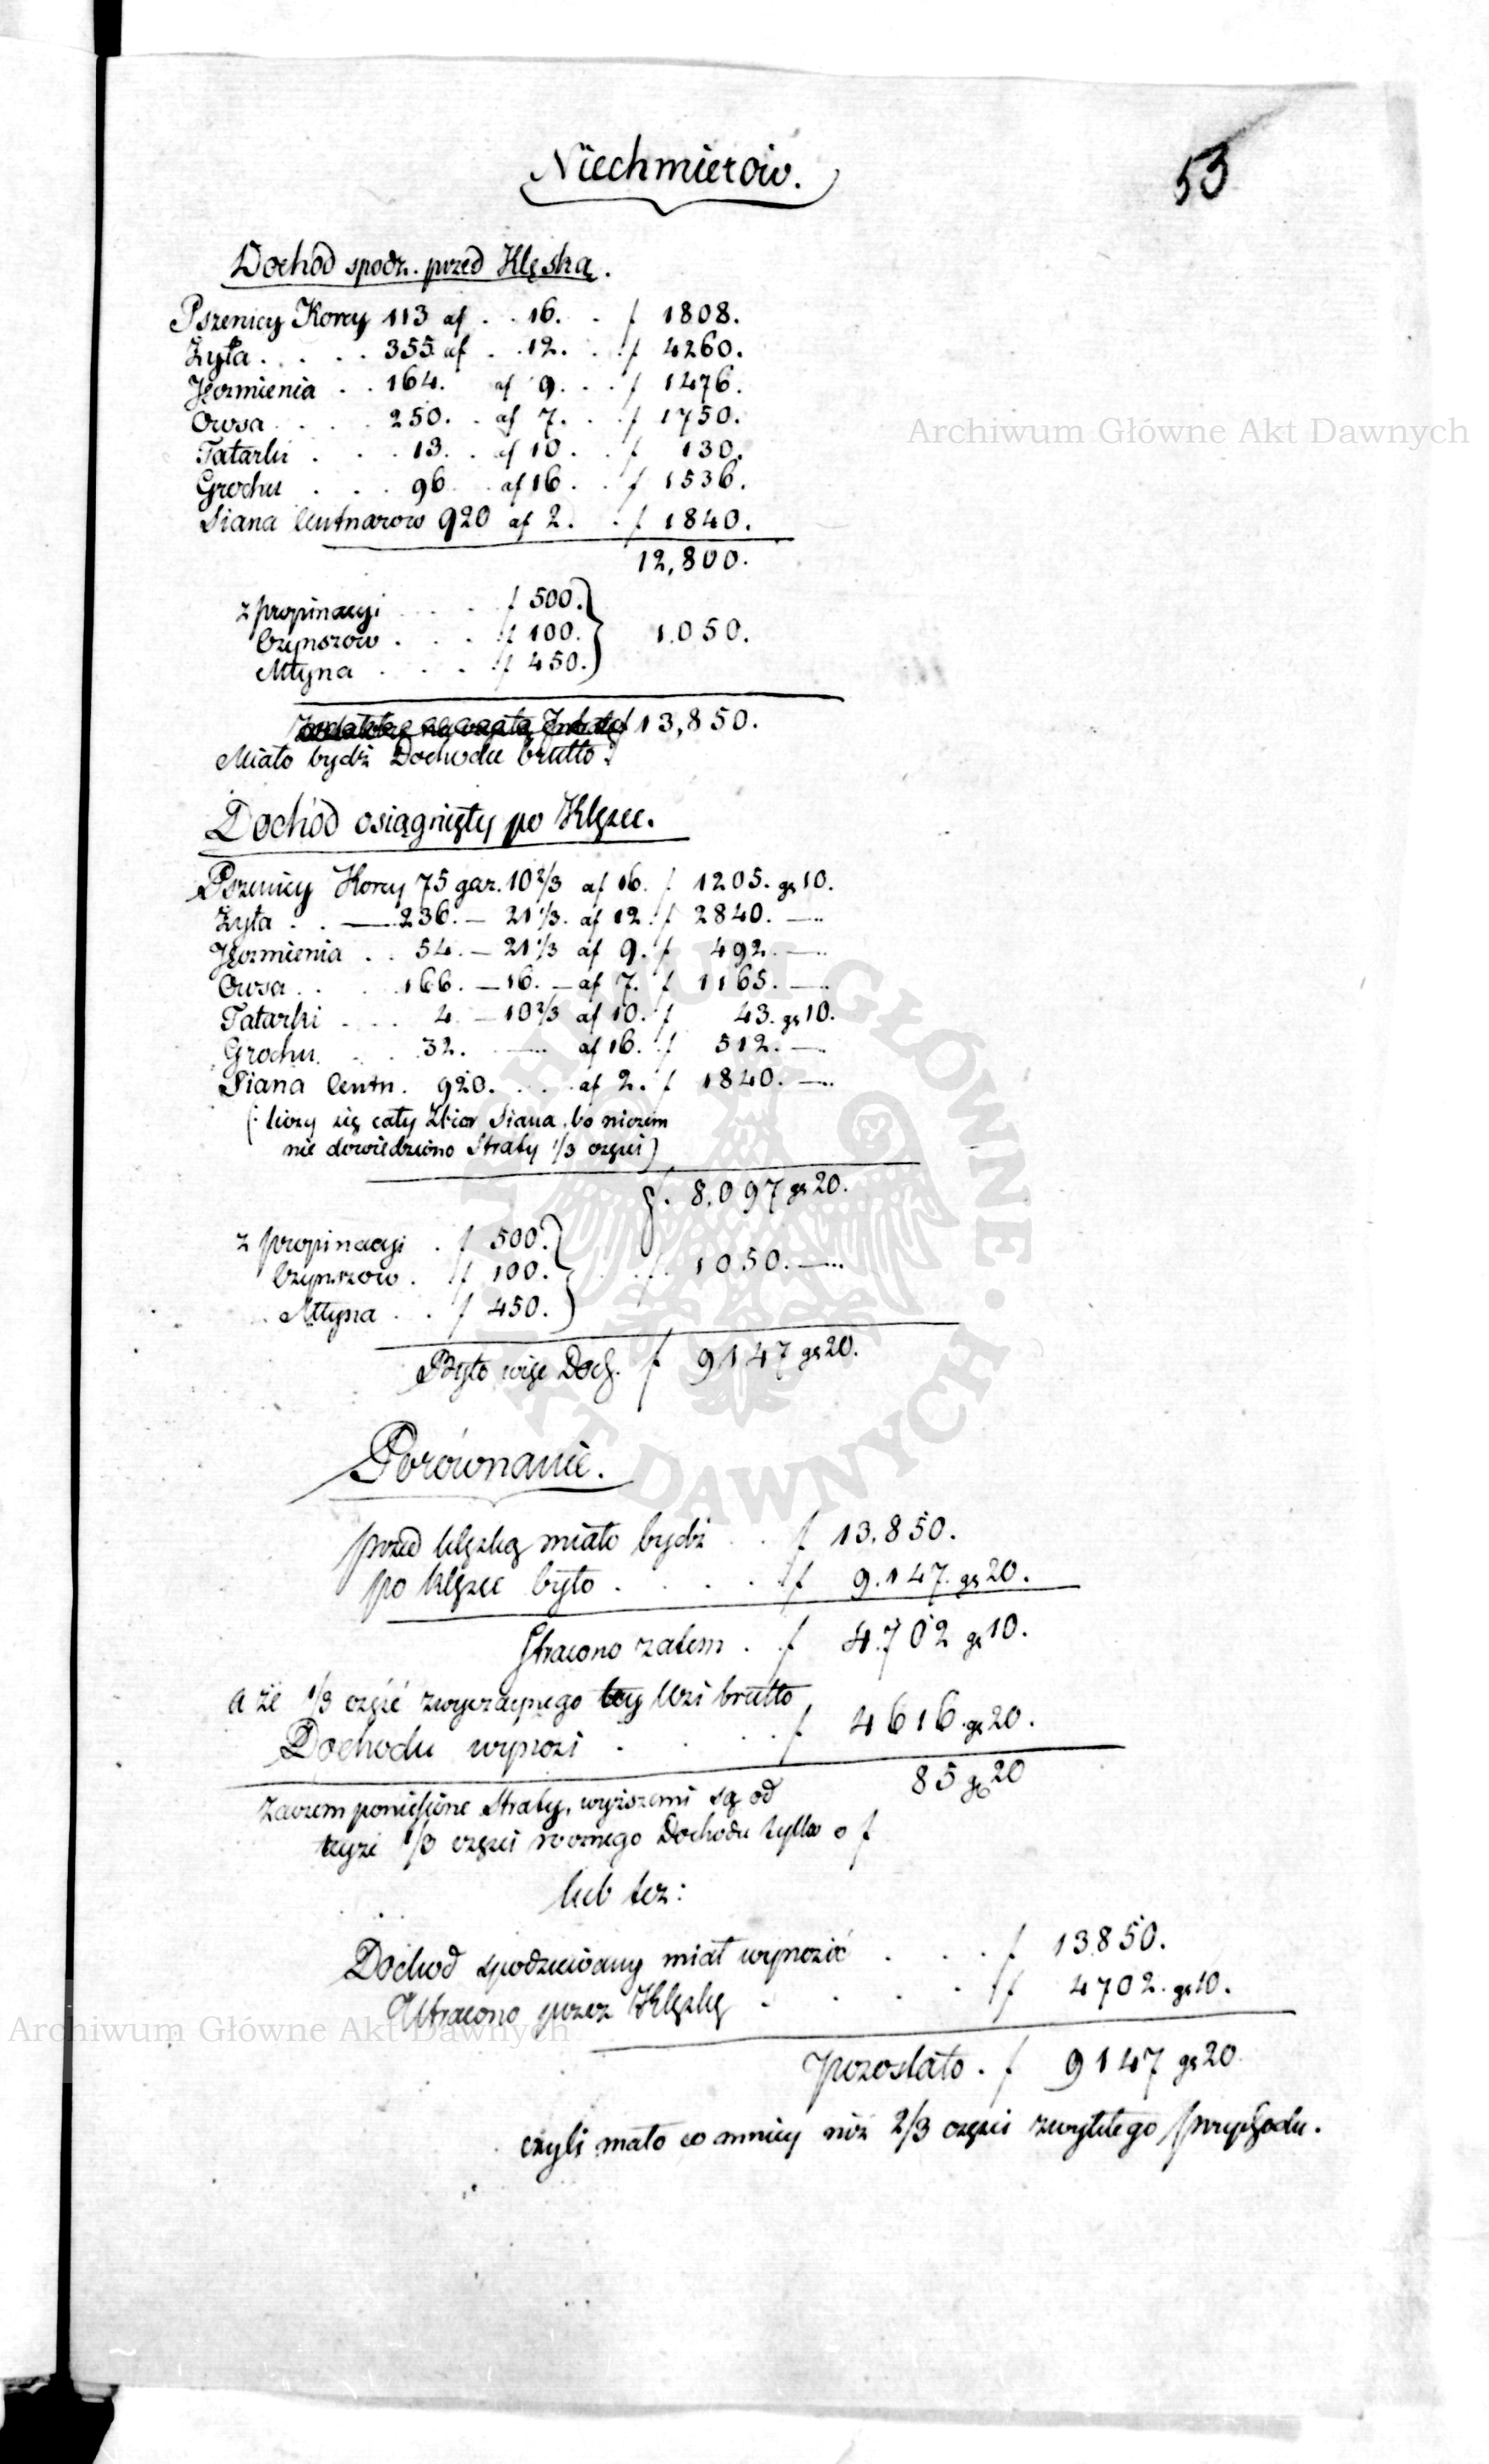 Niechmierów.
53
Dochód spodz. przed Klęską.
Pszenicy Korcy 113 af . . 16. . f 1808.
Żyta . . . . 355 af . . 12. . . f 4260.
Jęczmienia . . 164. af 9. . . f 1476.
Owsa . . . . 250. . af 7. . . f 1750.
Tatarki . . . 13. . af 10 . . f 130.
Grochu . . . 96 . . af 16 . . f 1536.
Siana Centnarow 920 af 2. . . f 1840.
12,800.
z propinacyi . . . . f 500.
Czynszow . . . . f 100. 1.050.
Młyna . . . . f 450.
13,850.
Miało bydź Dochodu brutto
Dochód osiągnięty po Klęsce.
Pszenicy Korcy 75 gar. 10 2/3 af 16. f 1205. gr 10.
Żyta . . — 236. — 21 1/3. af 12. f 2840. —
Jęczmienia . . 54. — 21 1/3 af 9. f 492. —
Owsa . . . 166. — 16. — af 7. f 1165. —
Tatarki . . . 4 — 10 2/3 af 10. f 43. gr 10.
Grochu . . . 32. — af 16. f 512. —
Siana Centn. 920. . . . af 2. f 1840. —
(: liczy się cały Zbior Siana, bo niczem
nie dowiedziono Straty 1/3 części)
f. 8.097 gr 20.
z propinacyi . f 500.
Czynszow . f 100. . . f 1050. —
Młyna . . f 450.
Było więc Doch. f 9147 gr 20.
Porównanie.
przed klęską miało bydź . . f 13.850.
po klęsce było . . . . f 9.147. gr 20.
Stracono zatem . . f 4.702 gr 10.
a że 1/3 część zwyczaynego brutto
Dochodu wynosi . . . . f 4616. gr 20.
Zaczem poniesione Straty, wyższemi są od 85 gr 20
1/3 części rocznego Dochodu tylko o f
lub też:
Dochod spodziewany miał wynosić . . . f 13850.
Utracono przez Klęskę . . . . f 4702. gr 10.
pozostało . f 9147 gr 20
czyli mało co mniey niż 2/3 części zwykłego przychodu.
Archiwum Główne Akt Dawnych
ARCHIWUM GŁÓWNE AKT DAWNYCH
Archiwum Główne Akt Dawnych